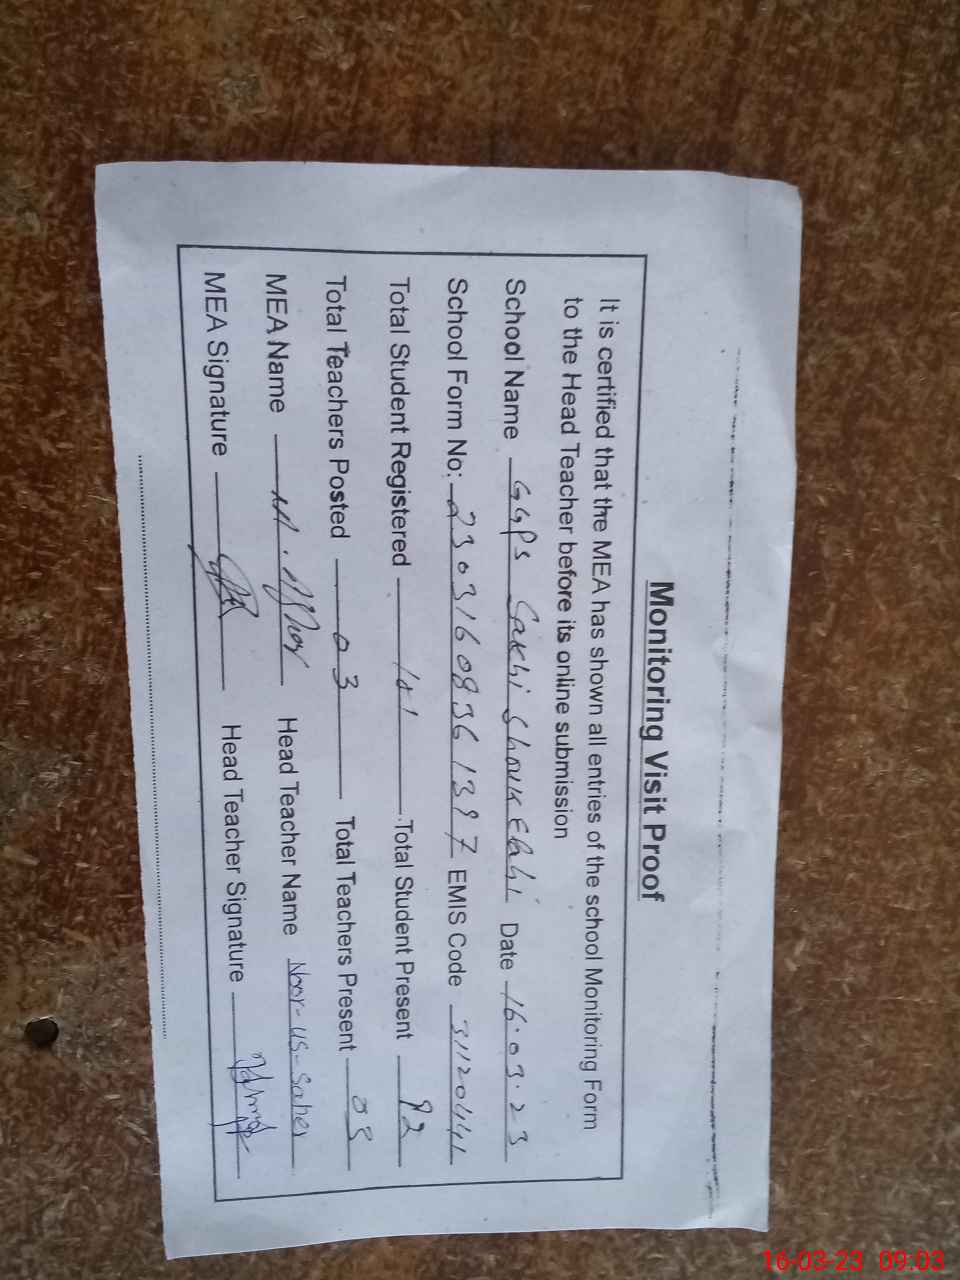 Monitoring Visit Proof
It is certified that the MEA has shown all entries of the school Monitoring Form
to the Head Teacher before its online submission
School Name GGPS Sakhi Shouk Elahi Date 16.03.23
School Form No: 23031608361397 EMIS Code 31120441
Total Student Registered 101 Total Student Present 92
Total Teachers Posted 03 Total Teachers Present 03
MEA Name M. Head Teacher Name Noor-us-Saher
MEA Signature Head Teacher Signature
16-03-23 09:03